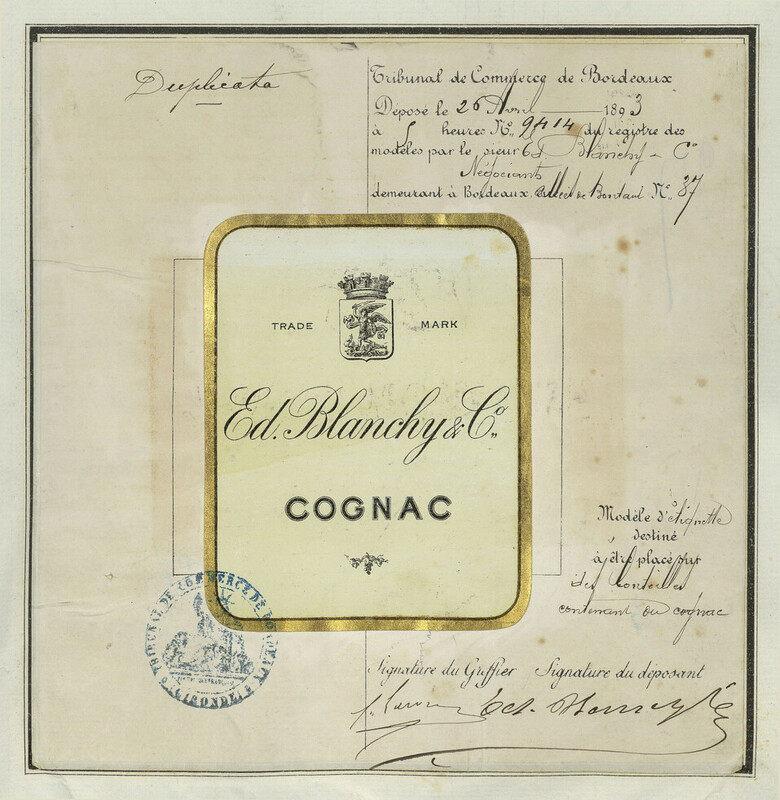 Duplicata
Tribunal de Commerce de Bordeaux
Déposé le 26 Avril 1893
à 5 heures N° 9414 du registre des
modèles par le sieur Ed. Blanchy & Co
Négociants
demeurant à Bordeaux, de Bordeaux N° 87
TRADE MARK
Ed. Blanchy & Co.
COGNAC
Modèle d'étiquette
destiné
à être placé sur
des bouteilles
contenant du cognac
TRIBUNAL DE COMMERCE DE BORDEAUX
(GIRONDE)
Signature du Greffier Signature du déposant
Ed. Blanchy & Co